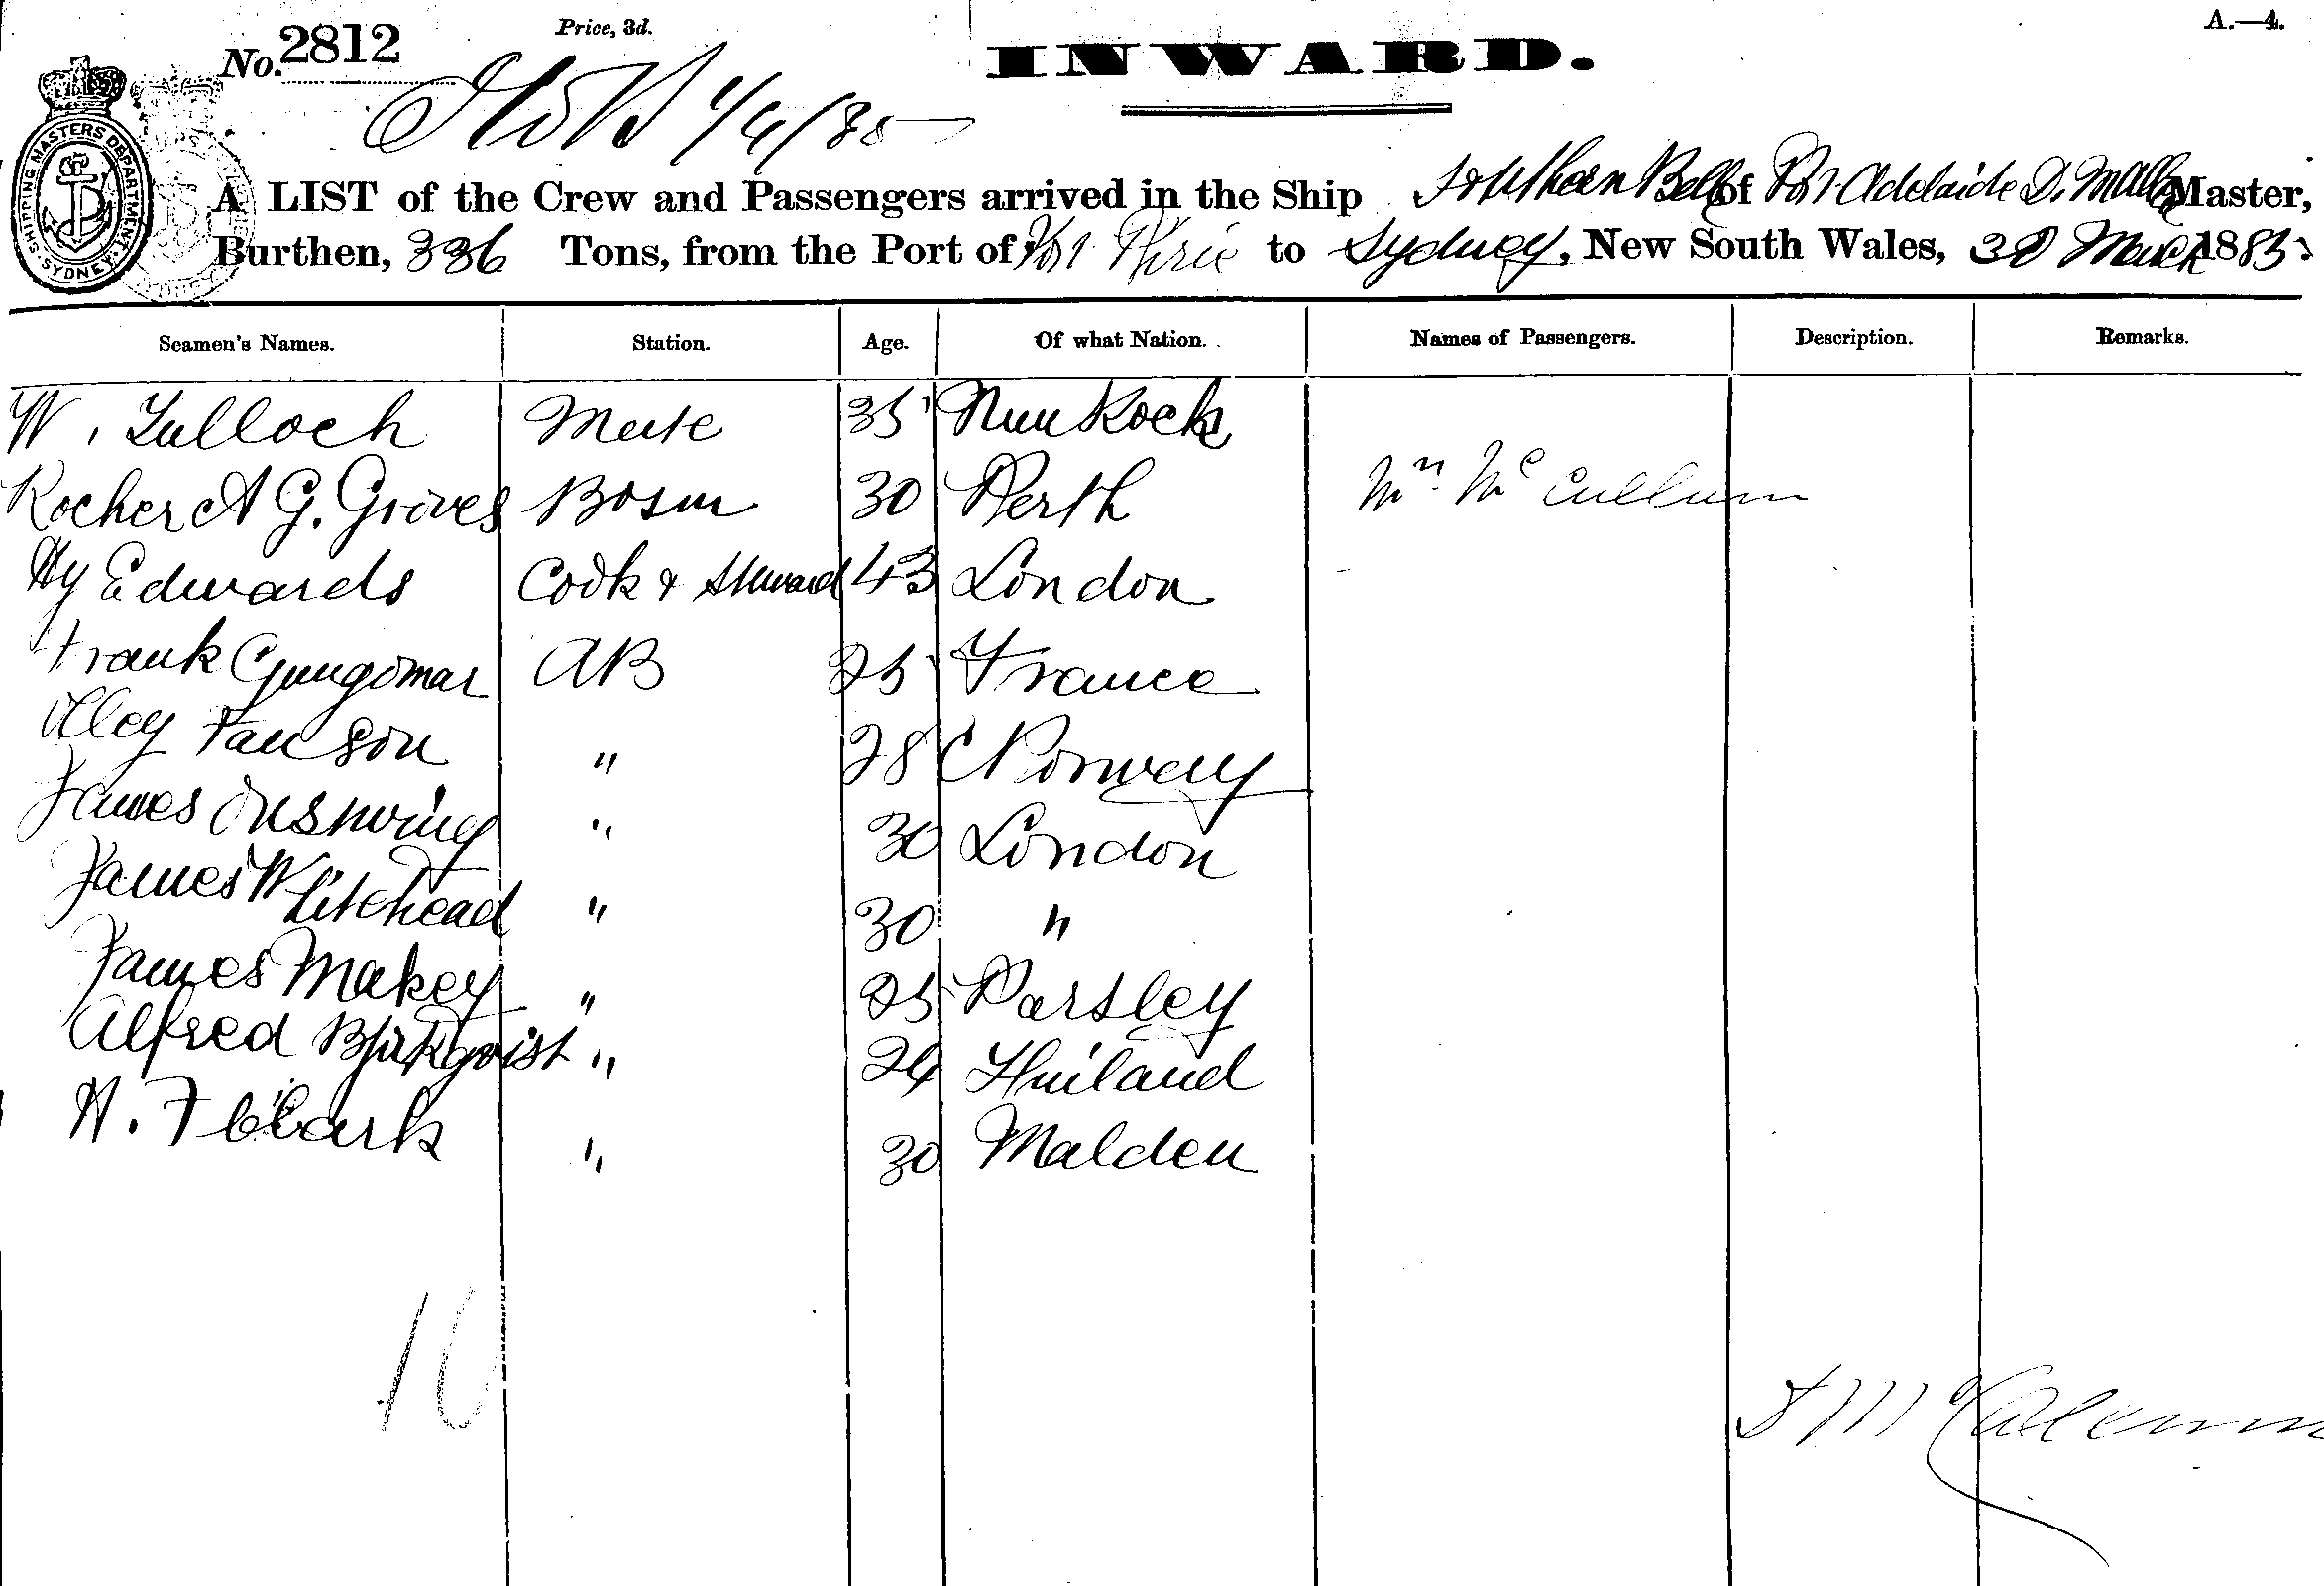 No. 2812
Price, 3d.
A.—4.
INWARD.
1/4/85
SHIPPING MASTERS DEPARTMENT SYDNEY
A LIST of the Crew and Passengers arrived in the Ship Southern Belle of Port Adelaide D. Master,
Burthen, 336 Tons, from the Port of Port Pirie to Sydney, New South Wales, 30 March 1885.
Seamen's Names. Station. Age. Of what Nation. Names of Passengers. Description. Remarks.
W. Tulloch Mate 35
A G. Groves Bosun 30 Perth Mrs. McCullum
Hy Edwards Cook & Steward 43 London
Frank AB 25 France
" 28 Norway
James " 30 London
James Whitehead " 30 "
James Makey " 25 Parsley
Alfred Bjorkqvist " 24
H. F Clark " 30 Malden
10